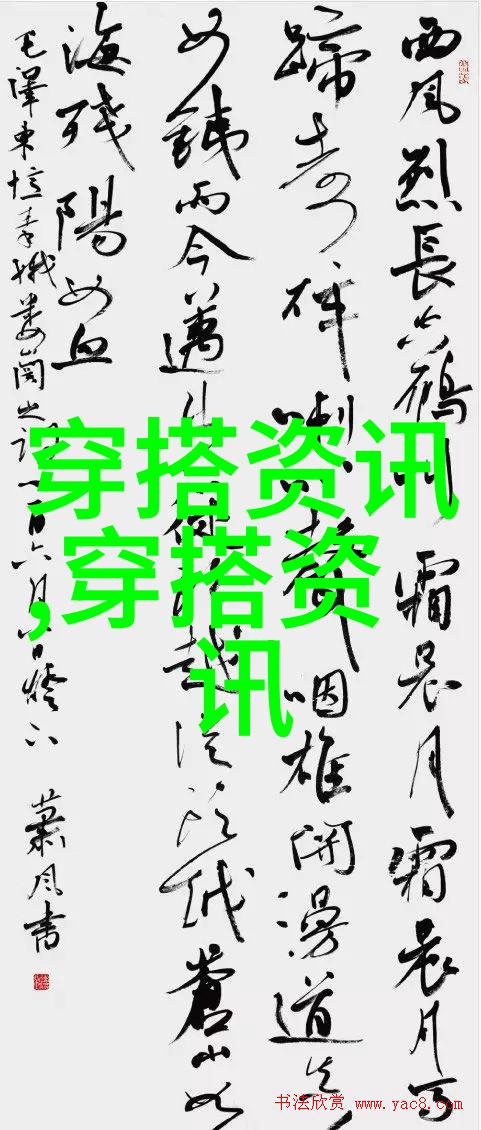 西风烈長空雁叫霜晨月霜晨月写
蹄声碎喇叭聲咽雄関漫道真
如鐵而今邁步從頭越從頭越蒼山如
海殘陽如血
毛澤東憶秦娥婁關之詞 六月 燈下 蕭风書
穿搭资讯
,穿搭资
讯
书法欣赏 www.yac8.com